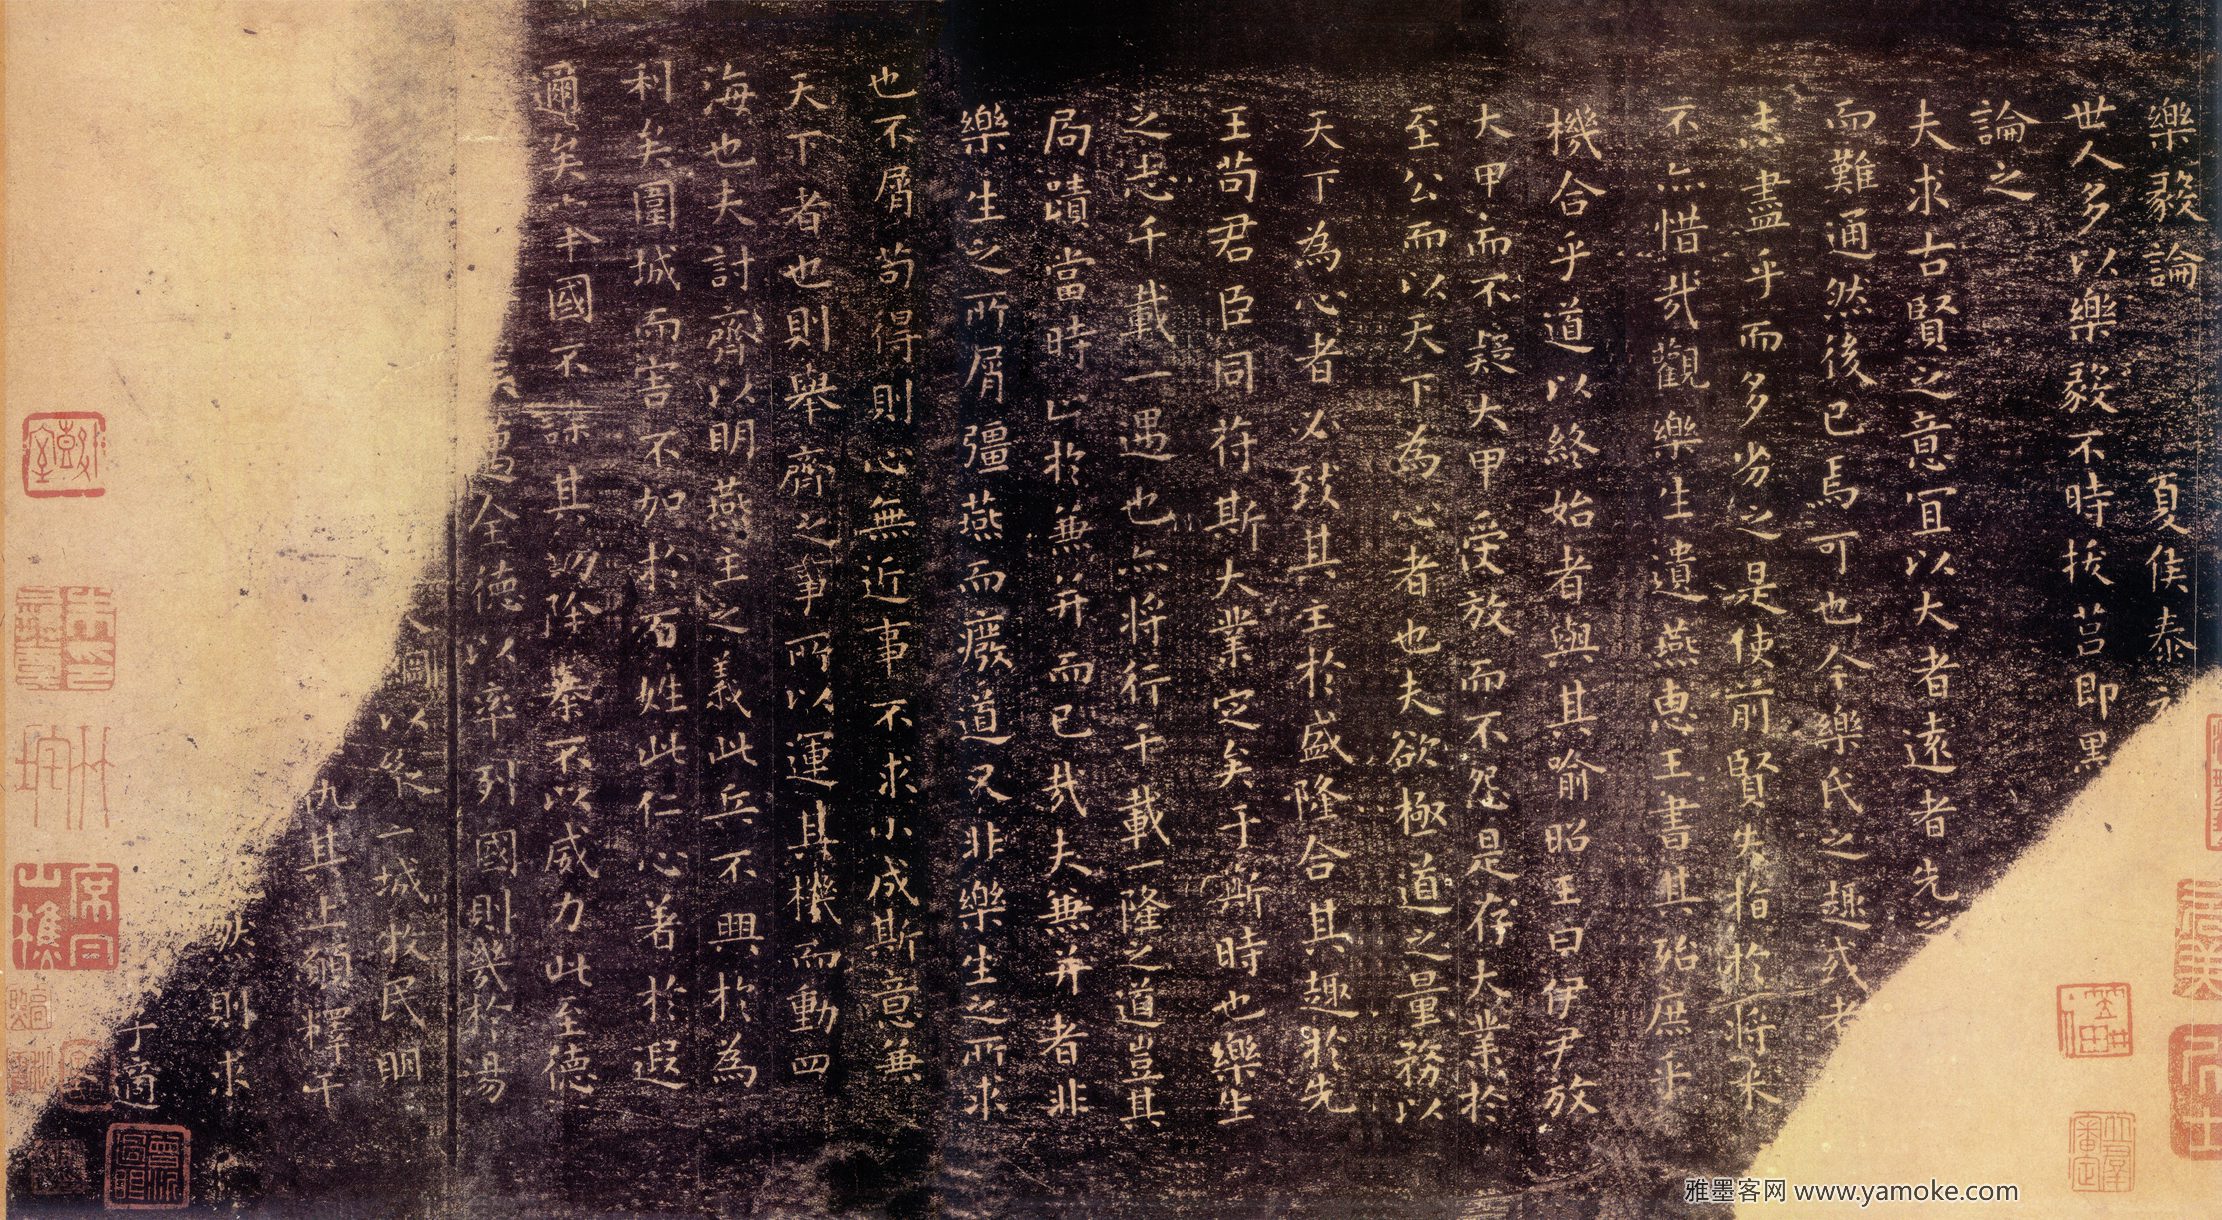 樂毅論 夏侯泰初
世人多以樂毅不時拔莒即墨
論之
夫求古賢之意宜以大者遠者先之
而難通然後已焉可也今樂氏之趣或者
未盡乎而多劣之是使前賢失指於將來
不亦惜哉觀樂生遺燕惠王書其殆庶乎
機合乎道以終始者與其喻昭王曰伊尹放
大甲而不疑大甲受放而不怨是存大業於
至公而以天下為心者也夫欲極道之量務以
天下為心者必致其主於盛隆合其趣於先
王苟君臣同符斯大業定矣于斯時也樂生
之志千載一遇也亦將行千載一隆之道豈其
局蹟當時止於兼并而已哉夫兼并者非
樂生之所屑彊燕而廢道又非樂生之所求
也不屑苟得則心無近事不求小成斯意兼
天下者也則舉齊之事所以運其機而動四
海也夫討齊以明燕主之義此兵不興於為
利矣圍城而害不加於百姓此仁心著於遐
邇矣舉國不謀其功除暴不以威力此至德
全德以率列國則幾於湯
以縱二城牧民明
仇其上願釋干
然則求
于適
雅墨客网 www.yamoke.com